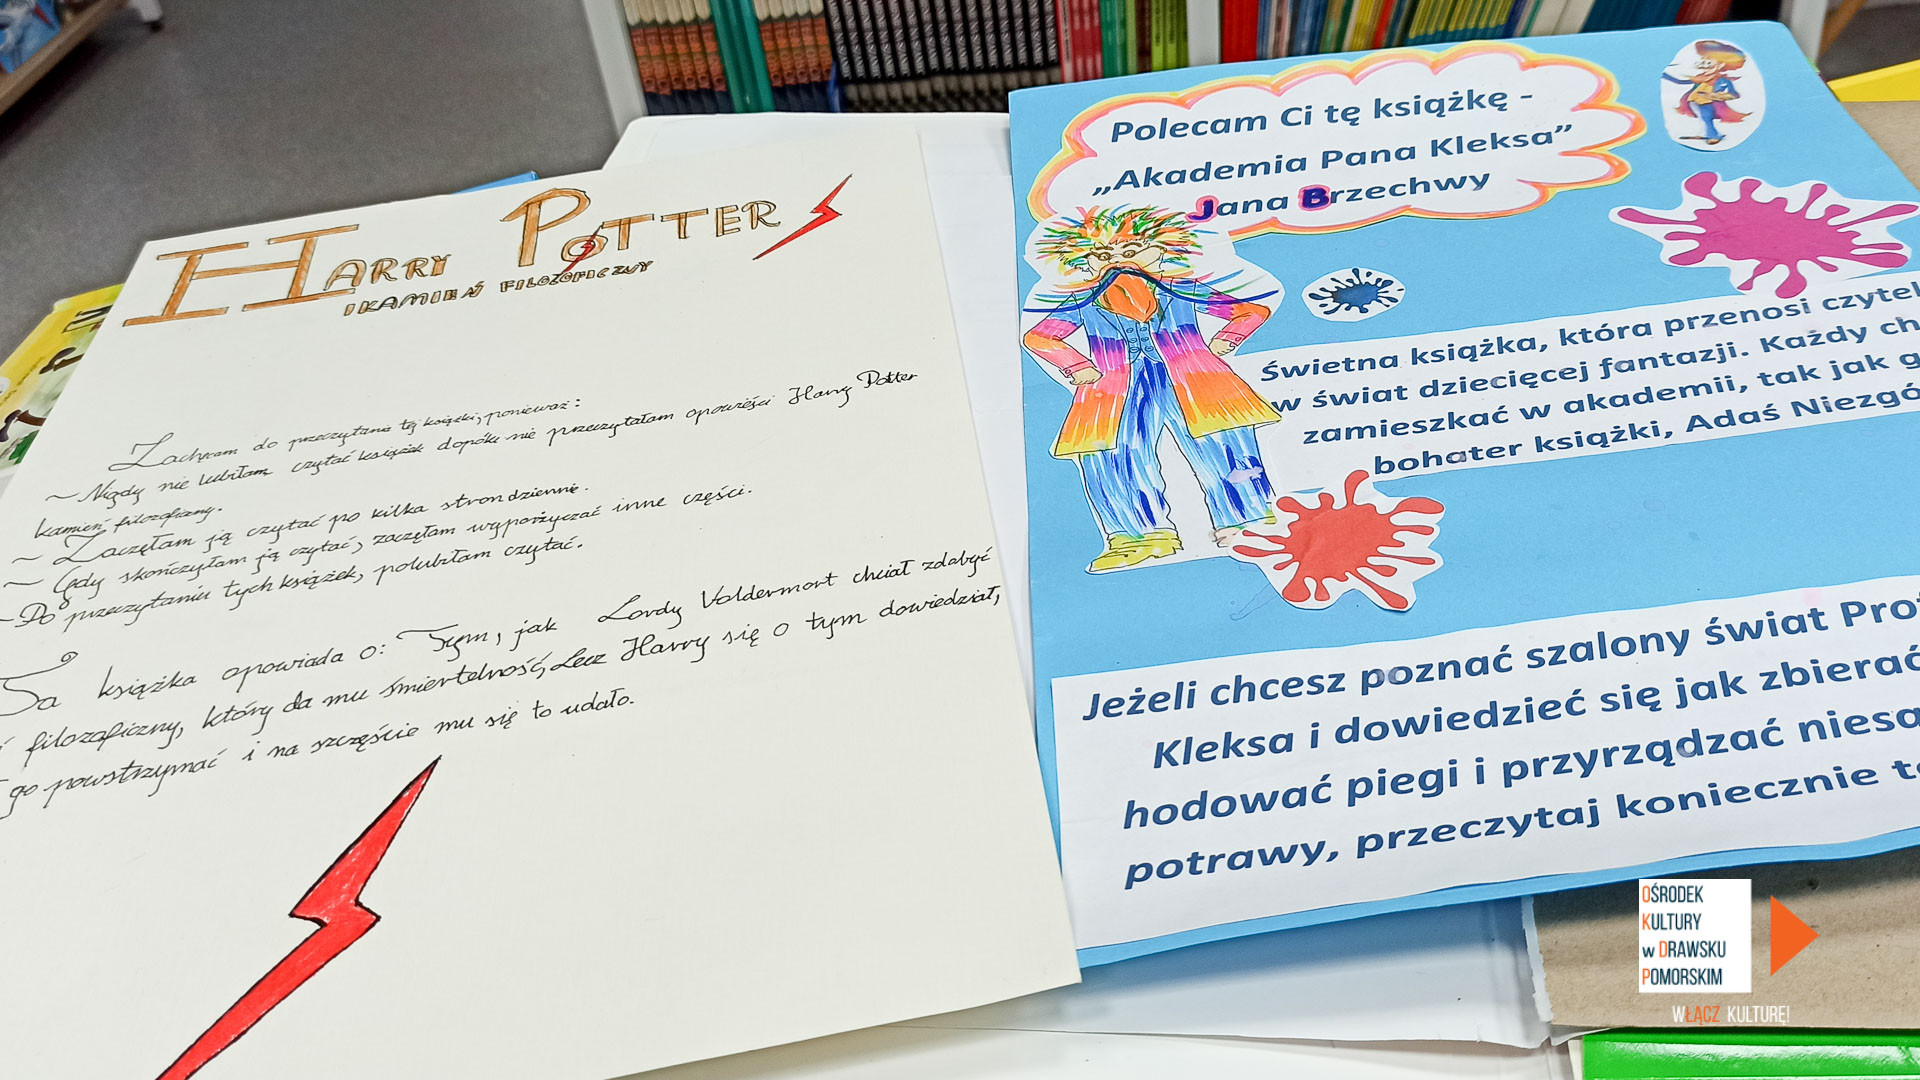 HARRY POTTER
I KAMIEŃ FILOZOFICZNY
Zachęcam do przeczytania tej książki, ponieważ:
~ Nigdy nie lubiłam czytać książek dopóki nie przeczytałam opowieści Harry Potter
kamień filozoficzny.
~ Zaczęłam ją czytać po kilka stron dziennie.
~ Gdy skończyłam ją czytać, zaczęłam wyporzyczać inne części.
~ Po przeczytaniu tych książek, polubiłam czytać.
Ta książka opowiada o: Tym, jak Lordy Voldermort chciał zdobyć
filozoficzny, który da mu śmiertelność, Lecz Harry się o tym dowiedział,
go powstrzymać i na szczęście mu się to udało.
Polecam Ci tę książkę -
„Akademia Pana Kleksa”
Jana Brzechwy
Świetna książka, która przenosi czytel
w świat dziecięcej fantazji. Każdy ch
zamieszkać w akademii, tak jak g
bohater książki, Adaś Niezgó
Jeżeli chcesz poznać szalony świat Pro
Kleksa i dowiedzieć się jak zbierać
hodować piegi i przyrządzać niesa
potrawy, przeczytaj koniecznie t
OŚRODEK
KULTURY
w DRAWSKU
POMORSKIM
WŁĄCZ KULTURĘ!